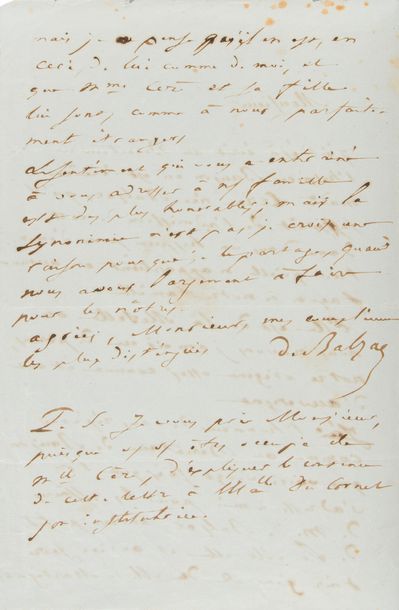 mais je pense qu'il en est, en
ceci, de lui comme de moi, et
que Mme Cère et sa fille
lui sont, comme à nous parfaite-
ment étrangers
Le sentiment qui vous a entraîné
à vous adresser à ma famille
est des plus honorables; mais la
Synonimie n'est pas, je crois une
raison pour que je le partage, quand
nous avons largement à faire
pour les nôtres.
agréez, Monsieur, mes complimens
les plus distingués
de Balzac
P. S. Je vous prie Monsieur,
puisque vous êtes occupé de
Mlle Cère, d'expliquer le contenu
de cette lettre à Mlle Du Cornet
son institutrice.